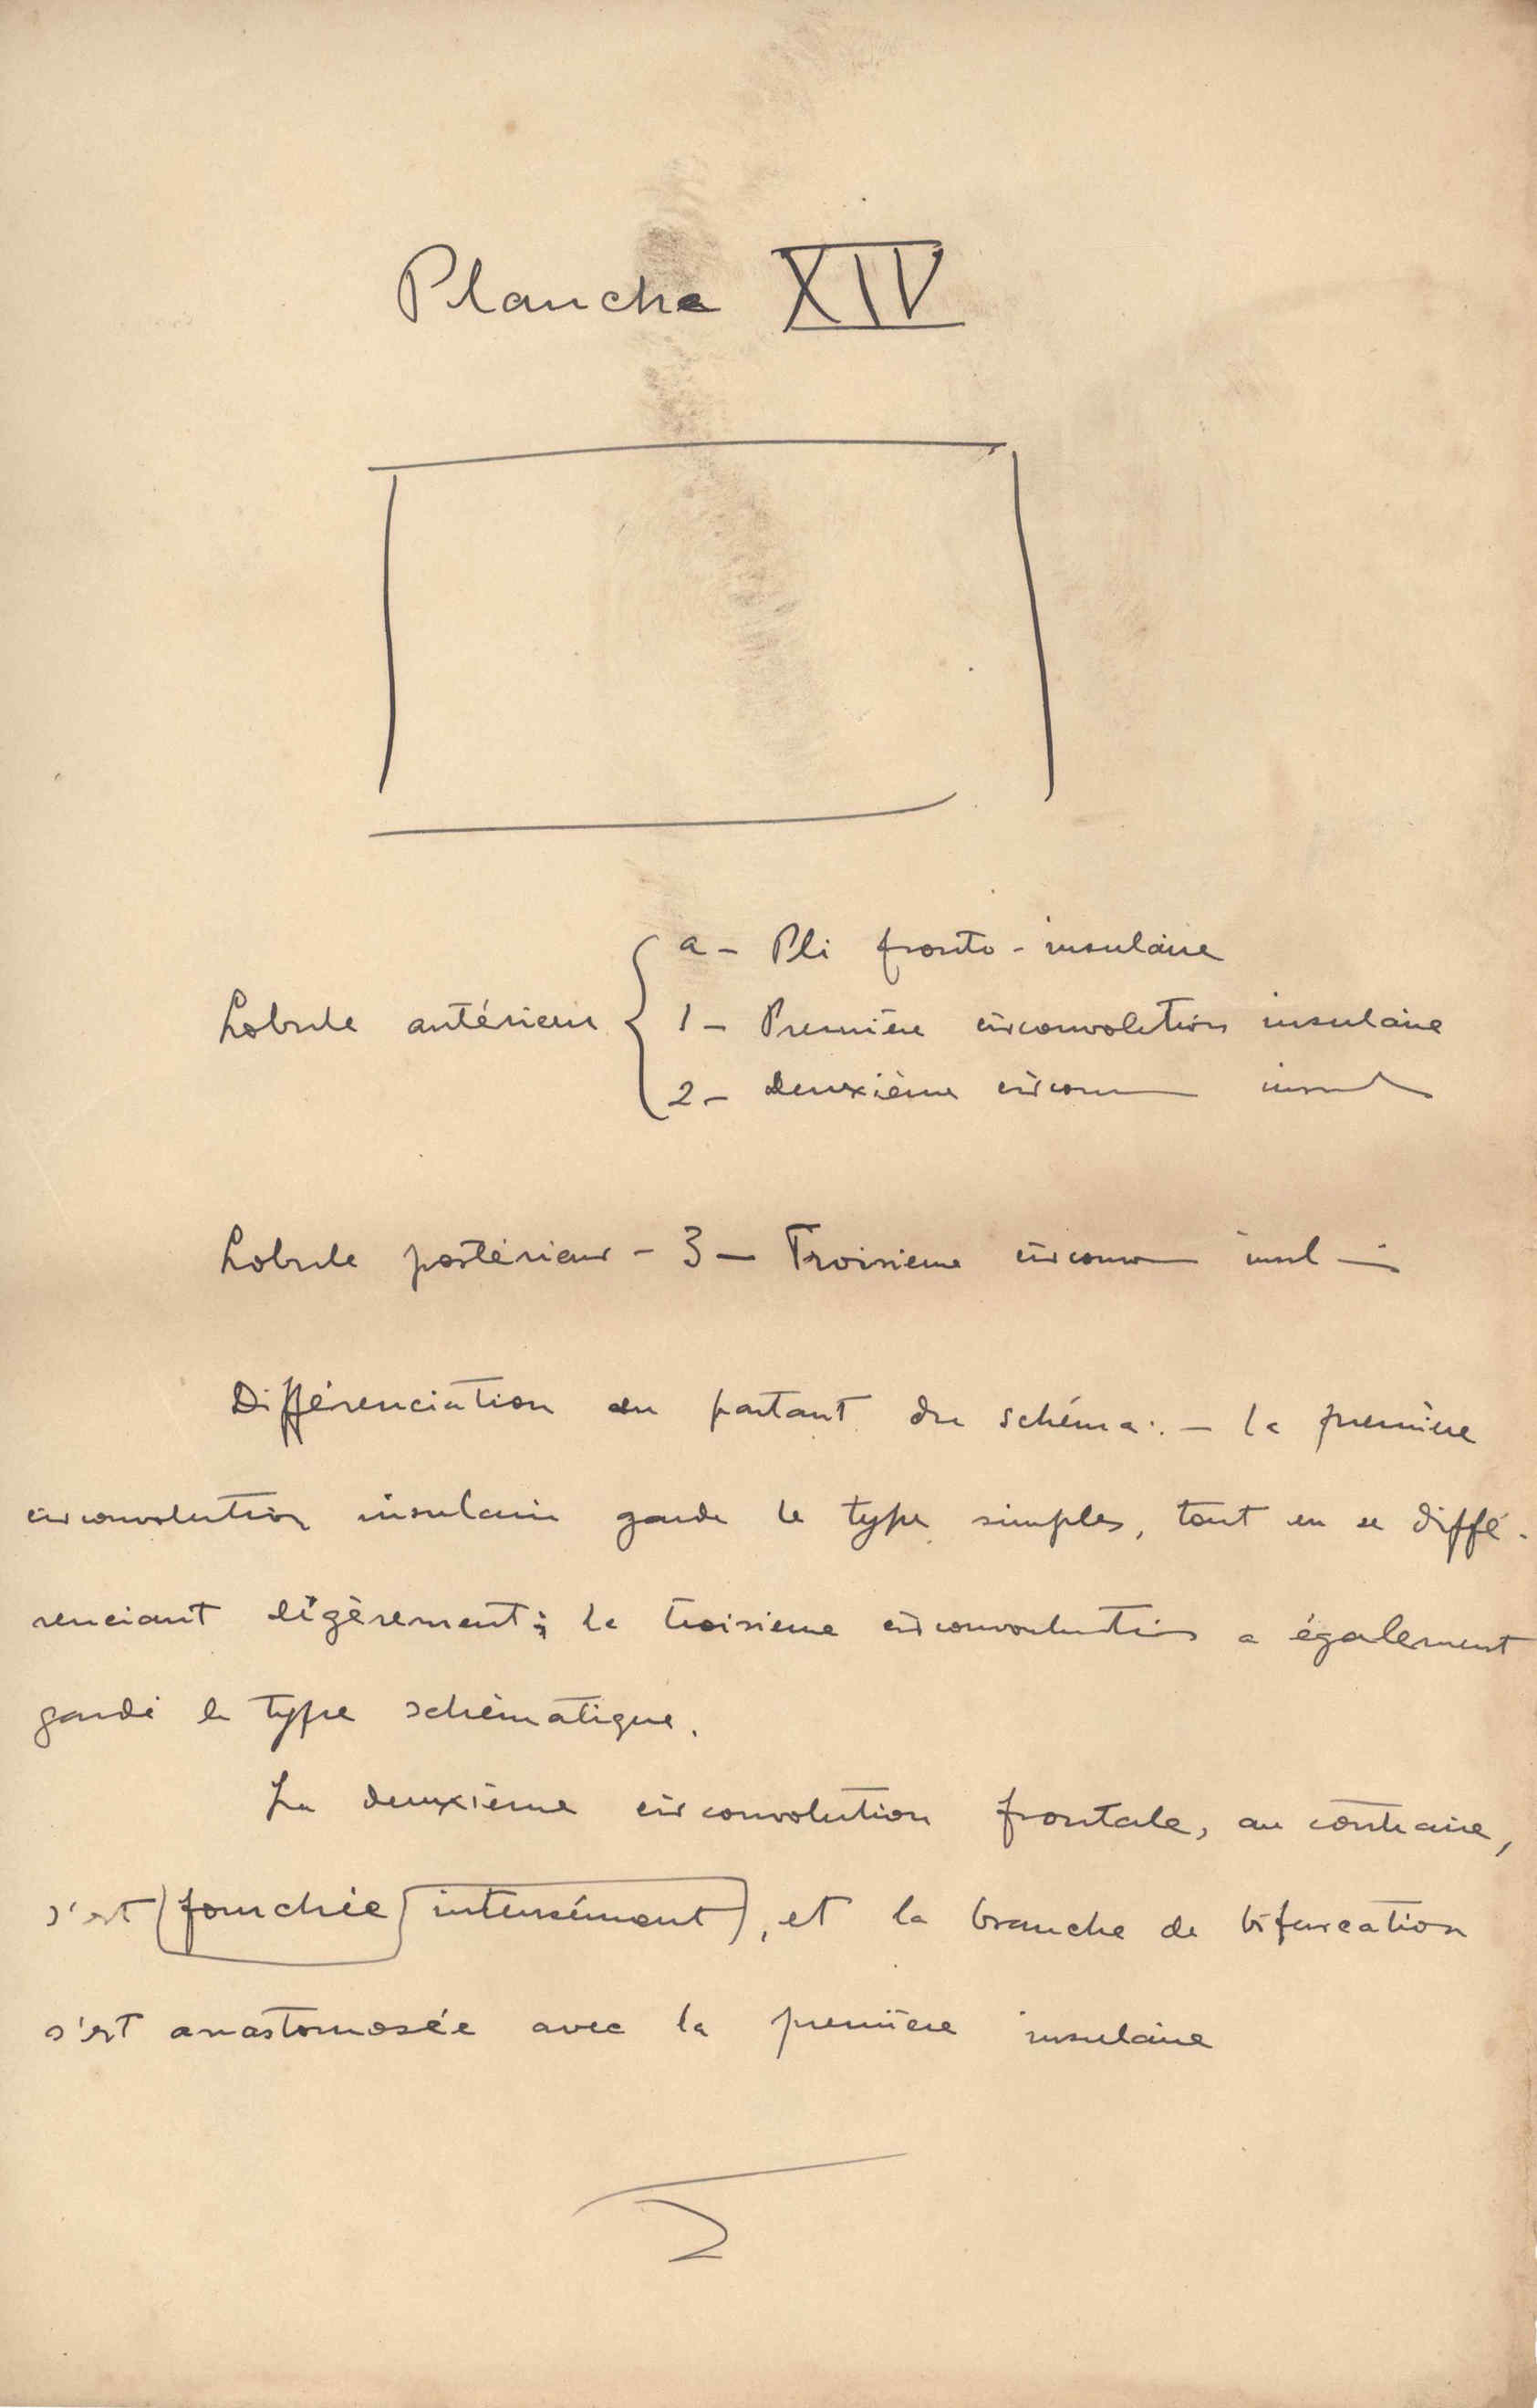 Planche XIV
a - Pli fronto-insulaire
Lobule antérieur { 1 - Première circonvolution insulaire
2 - Deuxième circonv insul
Lobule postérieur - 3 - Troisieme circonv insul
Différenciation en partant du schéma. - la première
circonvolution insulaire garde le type simples, tout en se diffé-
renciant légèrement; la troisieme circonvolution a également
gardé le type schématique.
La deuxième circonvolution frontale, au contraire,
s'est (fourchée) (intensément), et la branche de bifurcation
s'est anastomosée avec la première insulaire